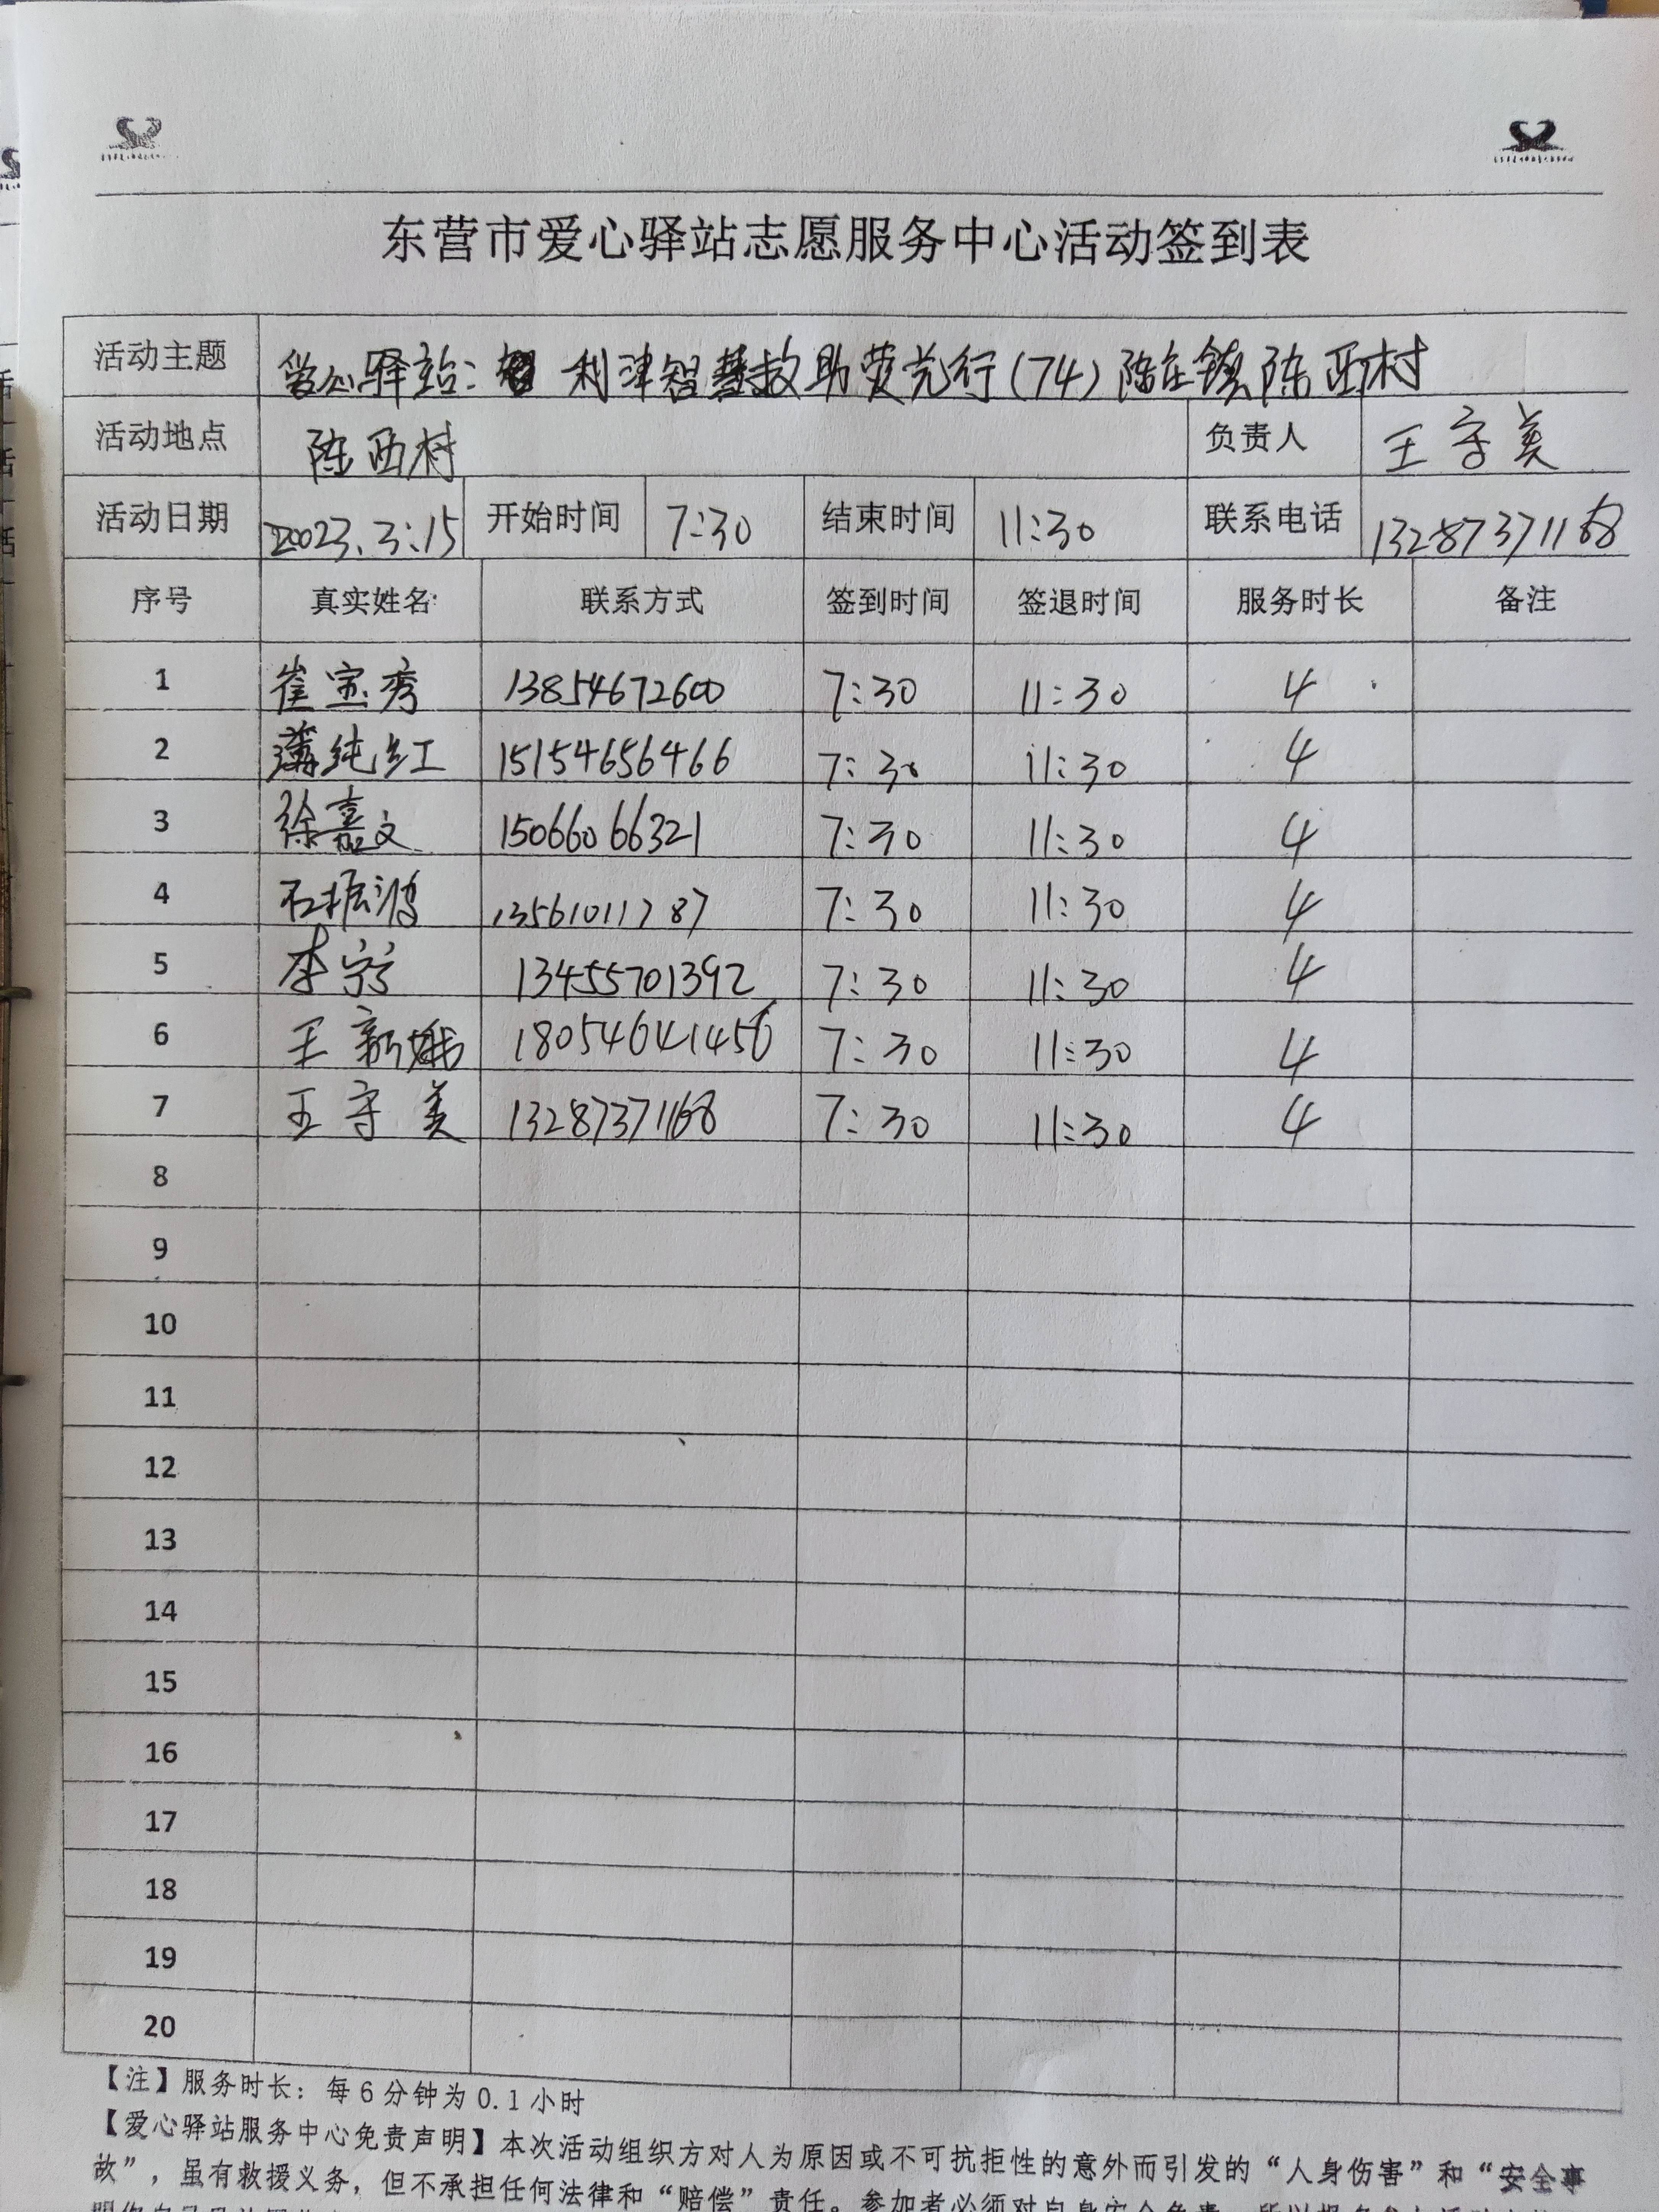 东营市爱心驿站志愿服务中心活动签到表
活动主题 爱心驿站: 利津智慧救助荧光行(74)陈庄镇陈西村
活动地点 陈西村 负责人 王守美
活动日期 2023.3:15 开始时间 7:30 结束时间 11:30 联系电话 13287371168
序号 真实姓名 联系方式 签到时间 签退时间 服务时长 备注
1 崔宝秀 13854672600 7:30 11:30 4
2 薄纯红 15154656466 7:30 11:30 4
3 徐嘉文 15066066321 7:30 11:30 4
4 石振鸿 13561011787 7:30 11:30 4
5 李 13455701392 7:30 11:30 4
6 王新娥 18054641456 7:30 11:30 4
7 王守美 13287371168 7:30 11:30 4
8
9
10
11
12
13
14
15
16
17
18
19
20
【注】服务时长：每6分钟为0.1小时
【爱心驿站服务中心免责声明】本次活动组织方对人为原因或不可抗拒性的意外而引发的“人身伤害”和“安全事
故”，虽有救援义务，但不承担任何法律和“赔偿”责任。参加者必须对自身安全负责